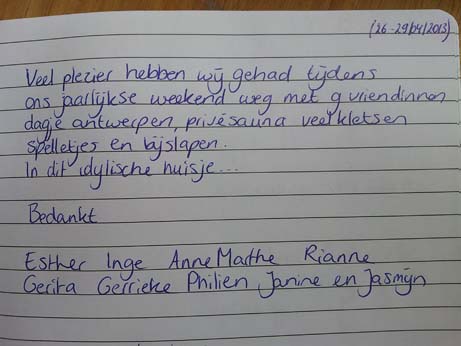 (26-29/04/2013)
Veel plezier hebben wij gehad tijdens
ons jaarlijkse weekend weg met 9 vriendinnen
dagje antwerpen, privésauna veel kletsen
spelletjes en bijslapen.
In dit idylische huisje...
Bedankt
Esther Inge AnneMarthe Rianne
Gerita Gerrieke Philien Janine en Jasmijn